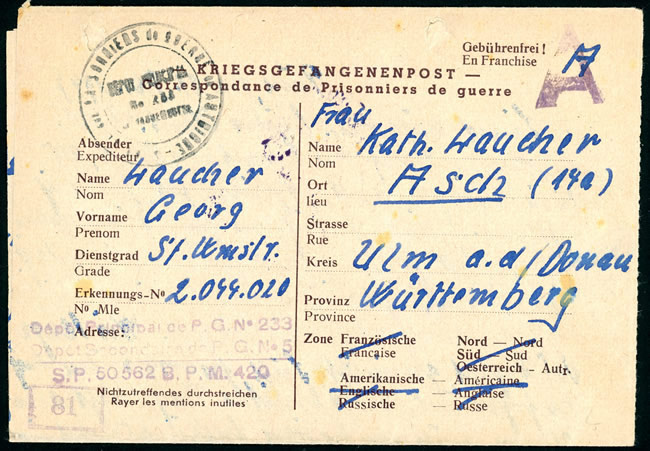 PRISONNIERS de GUERRE
Gebührenfrei !
En Franchise
A
A
KRIEGSGEFANGENENPOST —
Correspondance de Prisonniers de guerre
Frau
Name Kath. Laucher
Nom
Ort Asch (14a)
lieu
Strasse
Rue
Kreis Ulm a.d/Donau
Provinz Württemberg
Province
Zone Französische Nord — Nord
Française Süd — Sud
Oesterreich - Autr.
Amerikanische — Américaine
Englische — Anglaise
Russische — Russe
Absender
Expediteur
Name Laucher
Nom
Vorname Georg
Prenom
Dienstgrad
Grade
Erkennungs-No 2.044.020
No Mle
Adresse:
Dépôt Principal de P. G. No 233
P. G. No 5
S. P. 50 562 B. P. M. 420
Nichtzutreffendes durchstreichen
Rayer les mentions inutiles
81